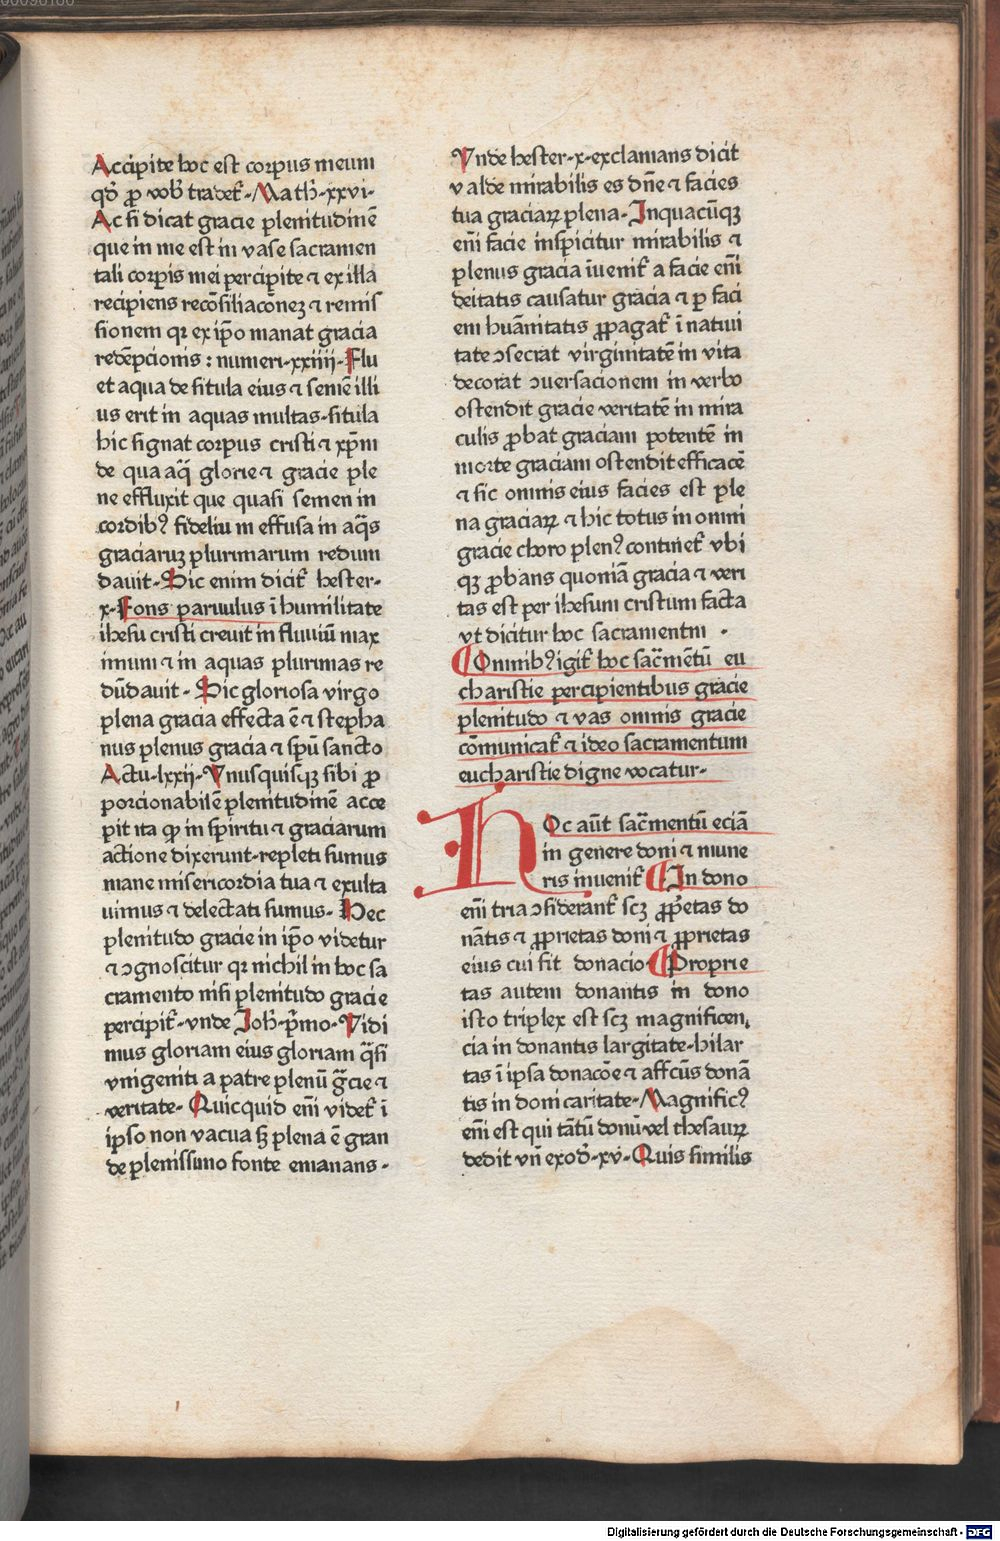 Accipite hoc est corpus meum
qd̕ ꝓ vob̕ tradet᷑·Math̕·xxvi·
Ac si dicat gracie plenitudinē
que in me est in vase sacramen
tali corꝑis mei percipite ⁊ ex illa
recipiens recōsiliacōnez ⁊ remis
sionem qꝛ ex ip̄o manat gracia
redēpcionis : numeri·xxiiii·Flu
et aqua de situla eius ⁊ semē illi
us erit in aquas multas·situla
hic signat corpus cristi ⁊ xp̄m
de qua aq̄ glorie ⁊ gracie ple
ne effluxit que quasi semen in
cordibꝰ fideliu m effusa in aq̄s
graciaruꝫ plurimarum redun
dauit·Sic enim dicit᷑ hester·
x·Fons paruulus ī humilitate
ihesu cristi creuit in fluuiū max
imum ⁊ in aquas plurimas re
dūdauit·Sic gloriosa virgo
plena gracia effecta ē ⁊ stepha
nus plenus gracia ⁊ spū sancto
Actu·lxxii·Vnusquisqꝫ sibi ꝓ
porcionabilē plenitudinē acce
pit ita ꝙ in spiritu ⁊ graciarum
actione dixerunt·repleti sumus
mane misericordia tua ⁊ exulta
uimus ⁊ delectati sumus·Hec
plenitudo gracie in ip̄o videtur
⁊ ↄgnoscitur qꝛ nichil in hoc sa
cramento nisi plenitudo gracie
percipit᷑·vnde Joh̕·p̄mo·Vidi
mus gloriam eius gloriam q̄si
vnigeniti a patre plenū gr̄cie ⁊
veritate·Quicquid eni̅ videt᷑ ī
ipso non vacua sꝫ plena ē gran
de plenissimo fonte emanans·
Vnde hester·x·exclamans dicit
valde mirabilis es dn̄e ⁊ facies
tua graciaꝝ plena·Inquacūqꝫ
eni̅ facie inspicitur mirabilis ⁊
plenus gracia īuenit᷑ a facie eni̅
deitatis causatur gracia ⁊ ꝑ faci
em huāitatis ꝓpagat᷑ ī natiui
tate ↄsecrat virginitatē in vita
decorat ↄuersacionem in verbo
ostendit gracie veritatē in mira
culis ꝓbat graciam potentē in
morte graciam ostendit efficacē
⁊ sic omnis eius facies est ple
na graciaꝝ ⁊ hic totus in omni
gracie choro plenꝰ continet᷑ vbi
qꝫ ꝓbans quoniā gracia ⁊ veri
tas est per ihesum cristum facta
vt dicitur hoc sacramentni ·
Omnibꝰ igit᷑ hoc sac̄mētū eu
charistie percipientibus gracie
plenitudo ⁊ vas omnis gracie
cōmunicat᷑ ⁊ ideo sacramentum
eucharistie digne vocatur·
Hoc aūt sac̄mentū eciā
in genere doni ⁊ mune
ris inuenit᷑ In dono
eni̅ tria ↄsiderant᷑ scꝫ ꝓp̄etas do
nātis ⁊ ꝓprietas doni ⁊ ꝓprietas
eius cui fit donacio Proprie
tas autem donantis in dono
isto triplex est scꝫ magnificen,
cia in donantis largitate·hilar
tas ī ipsa donacōe ⁊ affcūs donā
tis in doni caritate·Magnificꝰ
eni̅ est qui tātū donū vel thesauꝝ
dedit vn̄ exod̕·xv·Quis similis
Digitalisierung gefördert durch die Deutsche Forschungsgemeinschaft - DFG